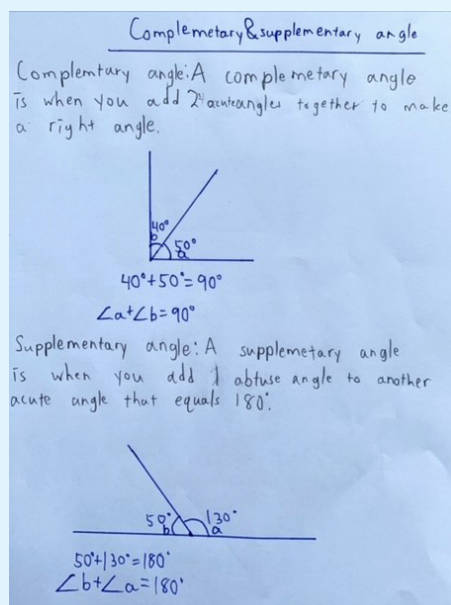 Complemetary & supplementary angle
Complemtary angle: A complemetary angle
is when you add 2 acute angles together to make
a right angle.
40°
b
50°
a
40°+50°=90°
∠a+∠b=90°
Supplementary angle: A supplemetary angle
is when you add 1 abtuse angle to another
acute angle that equals 180°.
50° 130°
b a
50°+130°=180°
∠b+∠a=180°